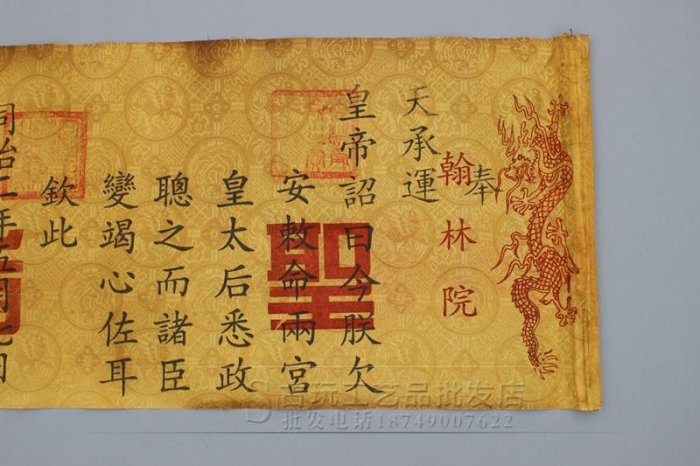 奉
翰林院
天承運
皇帝詔曰今朕欠
安敕命兩宮
皇太后悉政
聰之而諸臣
變竭心佐耳
欽此
同治二年五月七日
聖
玩工艺品批发店
批发电话18749007622